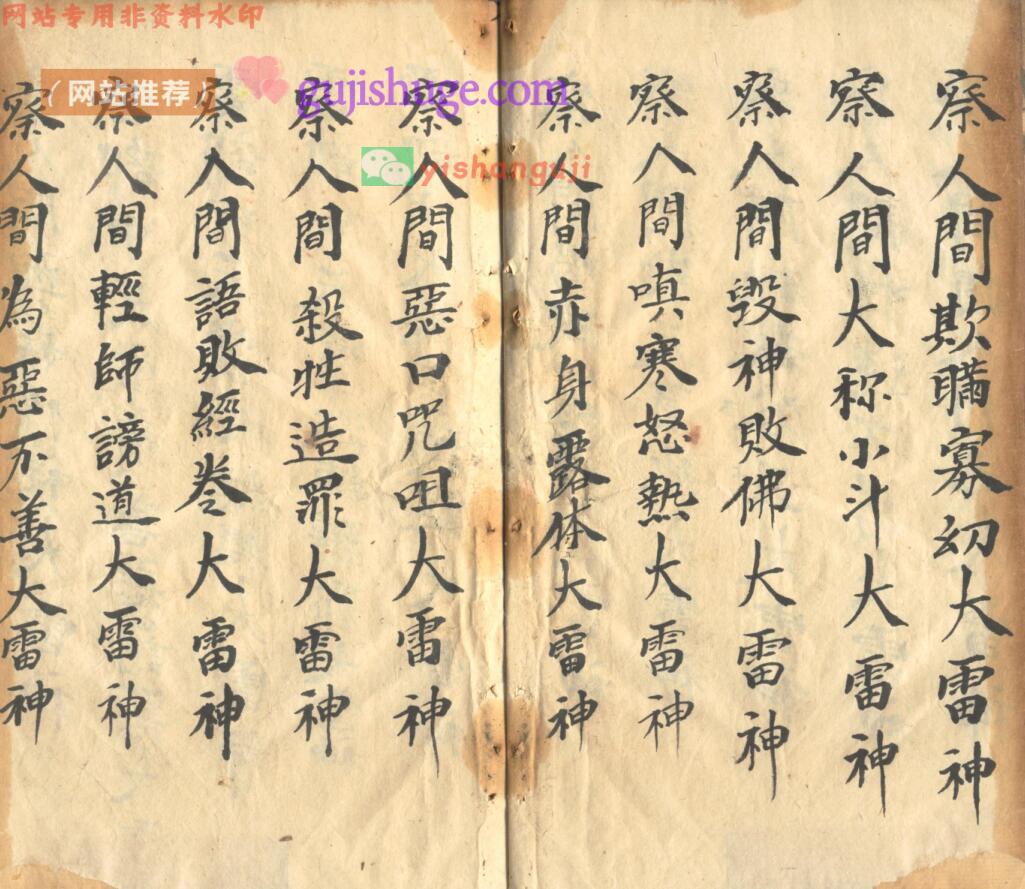 网站专用非资料水印
（网站推荐）
gujishuge.com
yishanguji
察人間欺瞞寡幼大雷神
察人間大称小斗大雷神
察人間毀神敗佛大雷神
察人間嗔寒怒熱大雷神
察人間赤身露体大雷神
察人間惡口咒咀大雷神
察人間殺牲造罪大雷神
察人間語敗經卷大雷神
察人間輕師謗道大雷神
察人間為惡不善大雷神